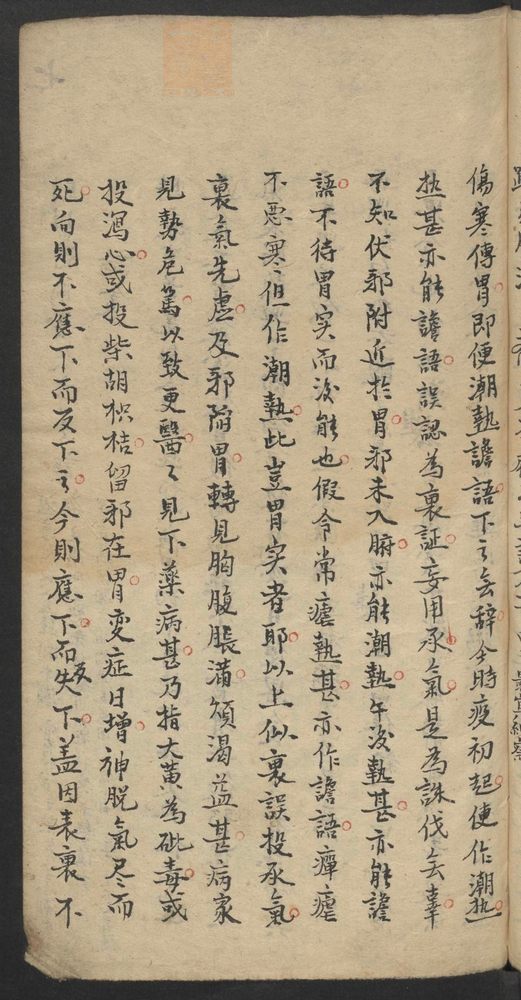 傷寒傳胃即便潮热譫語下之无辞今時疫初起便作潮热
热甚亦能譫語誤認為裏証妄用承氣是為誅伐无辜
不知伏邪附近扵胃邪未入腑亦能潮热午後热甚亦能譫
語不待胃实而後能也假令常瘧热甚亦作譫語癉瘧
不悪寒但作潮热此豈胃实者耶以上似裏誤投承氣
裏氣先虚及邪陥胃轉見胸腹脹滿煩渴益甚病家
見勢危篤以致更醫々見下藥病甚乃指大黄為砒毒或
投瀉心或投柴胡枳桔留邪在胃変症日增神脱氣尽而
死向則不應下而反下之今則應下而反失下盖因表裏不